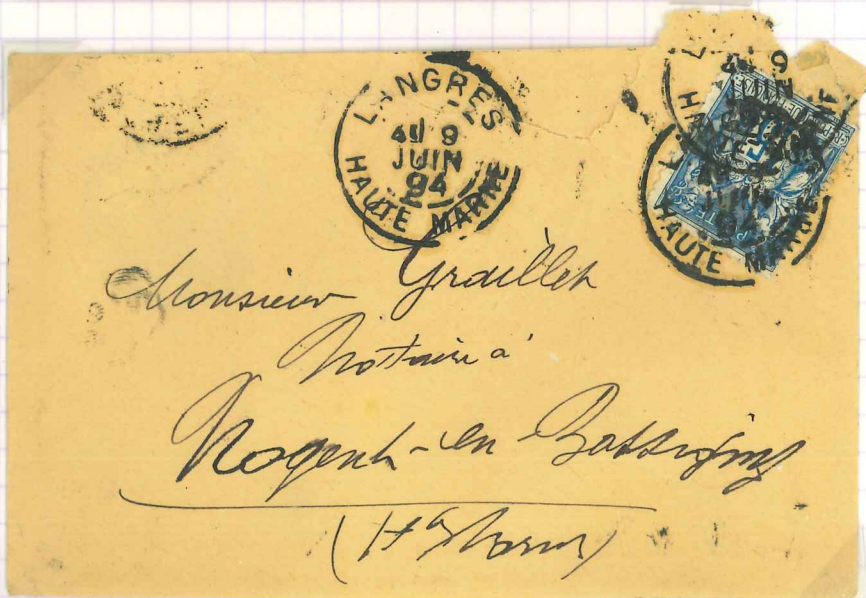 LANGRES
4E 9
JUIN
94
HAUTE MARNE
L 9
JUIN
HAUTE MARNE
Monsieur Graillet
Notaire à
Nogent-en-Bassigny
(Hte Marne)